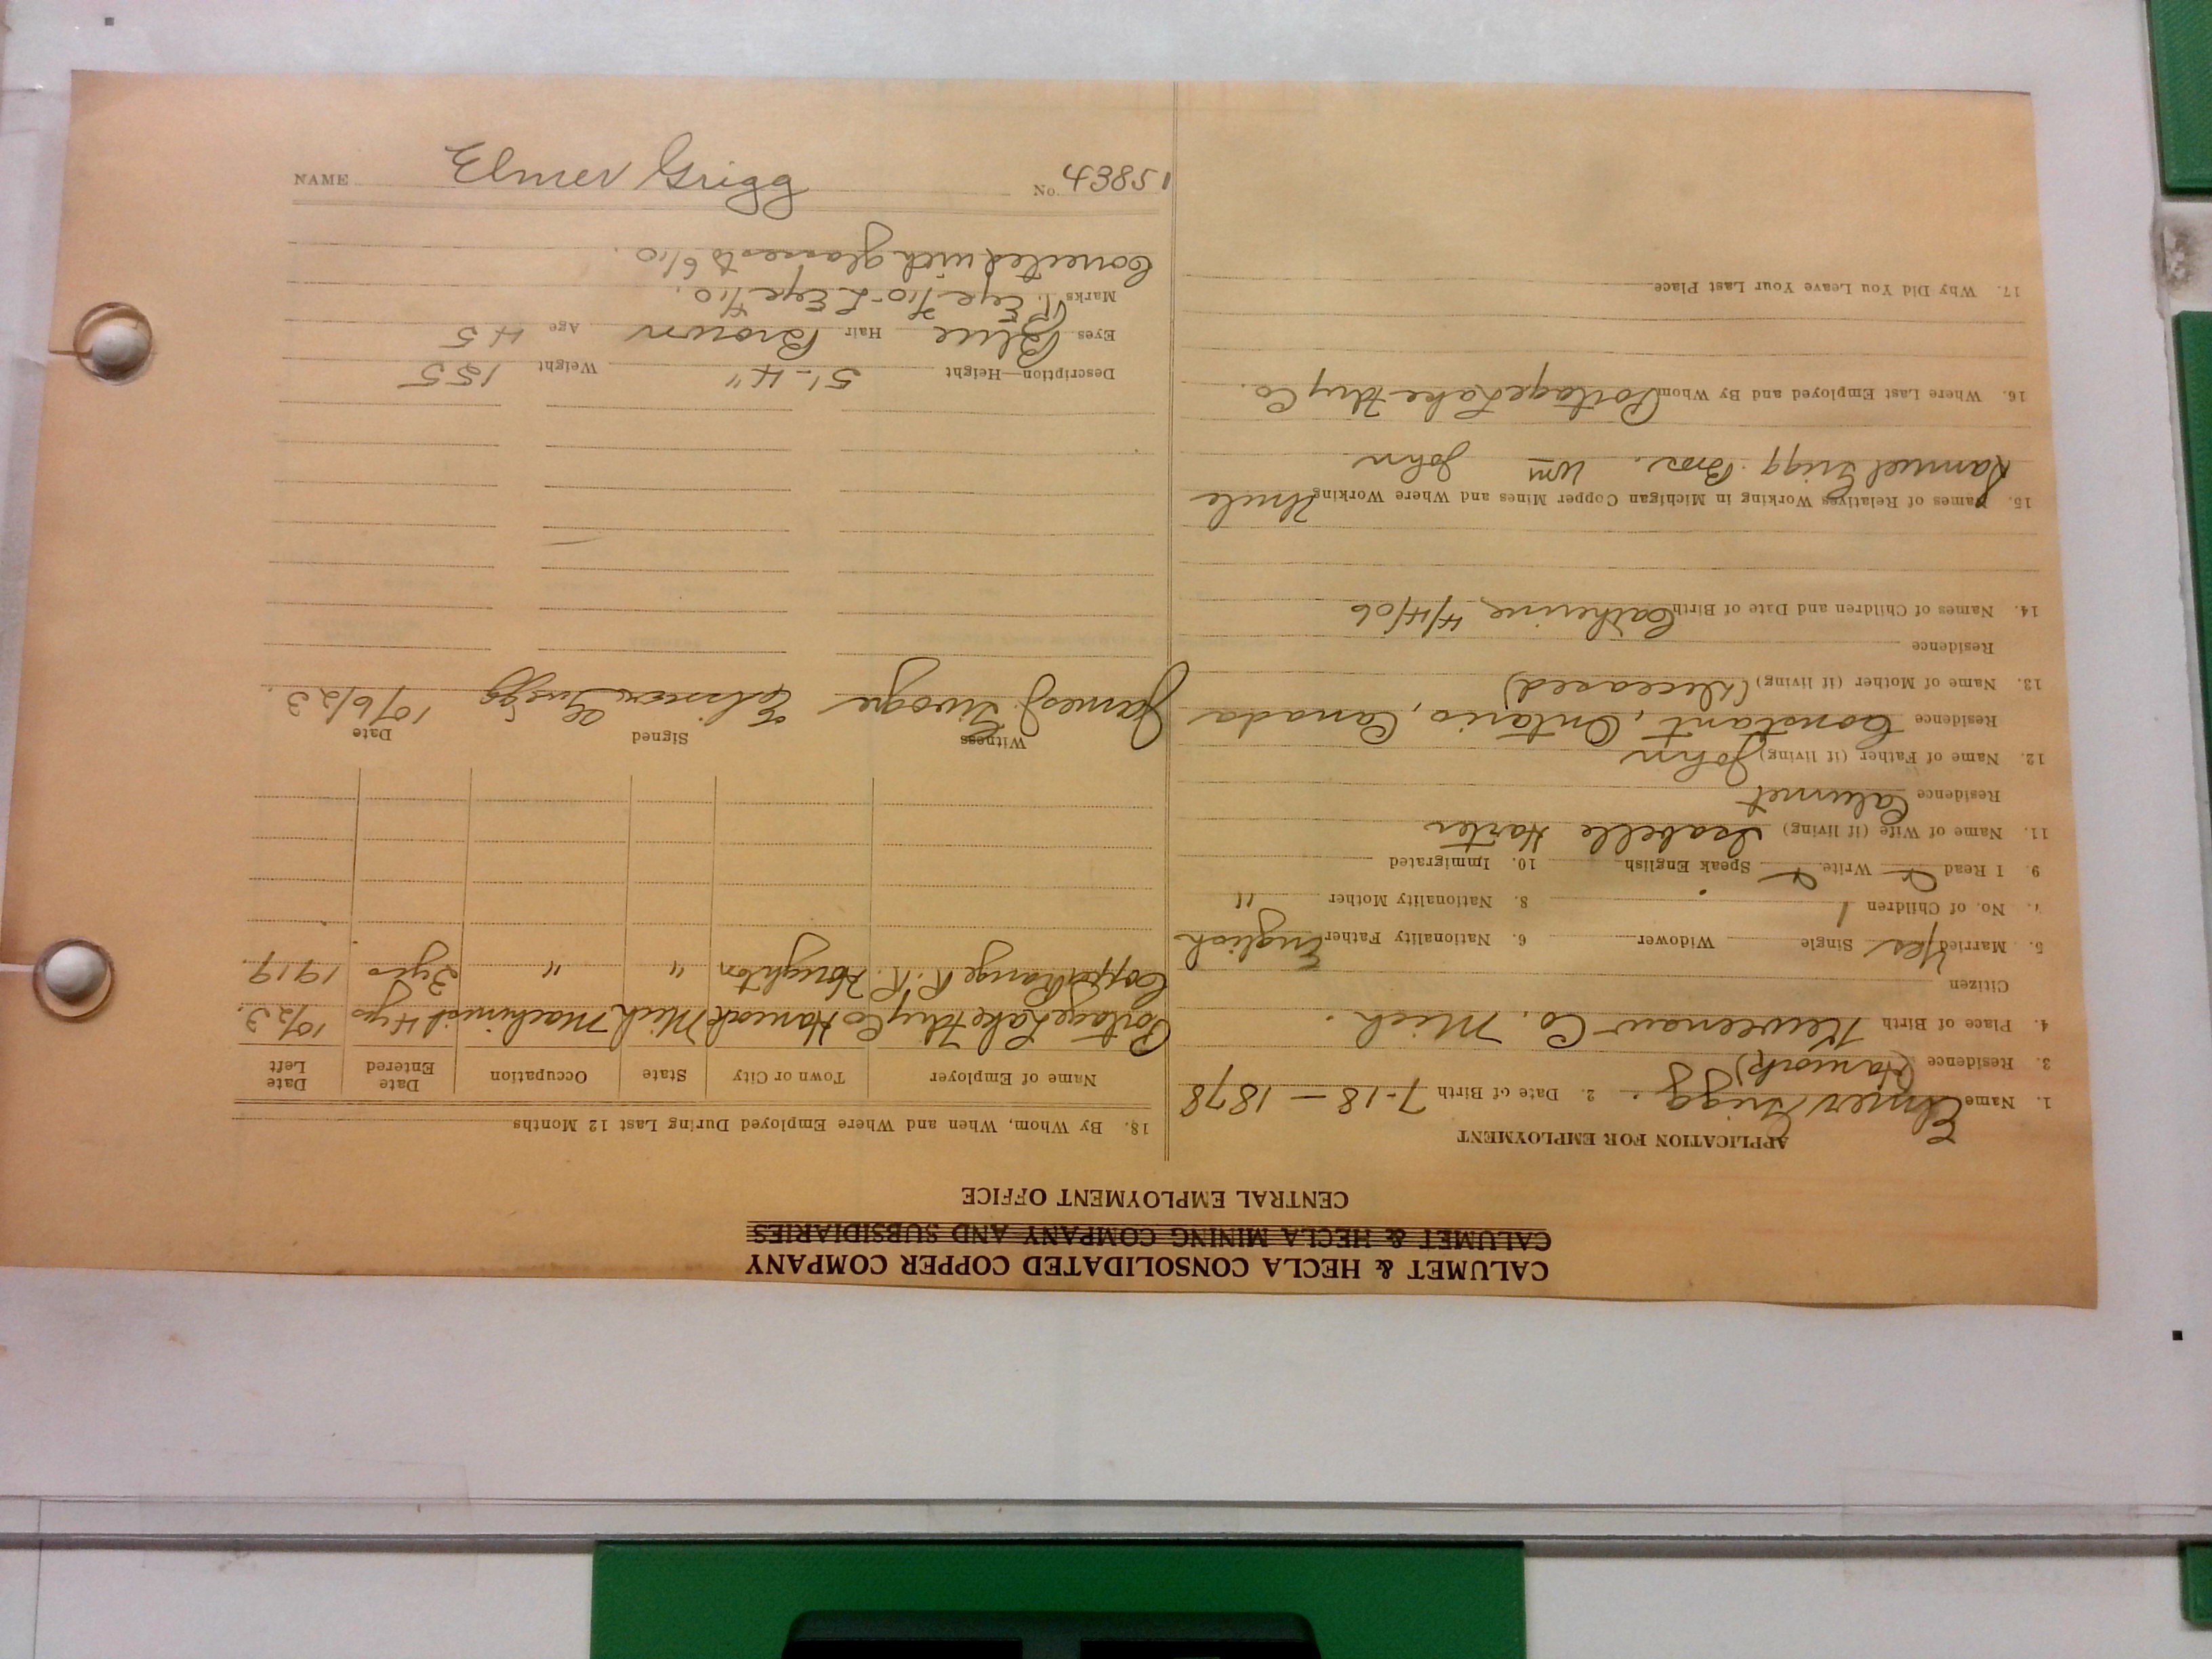 CALUMET & HECLA CONSOLIDATED COPPER COMPANY
CALUMET & HECLA MINING COMPANY AND SUBSIDIARIES
CENTRAL EMPLOYMENT OFFICE
APPLICATION FOR EMPLOYMENT
1. Name Elmer Grigg. 2. Date of Birth 7-18-1878
3. Residence (Hancock)
4. Place of Birth Keweenaw Co. Mich.
Citizen
5. Married Yes Single Widower 6. Nationality Father English
7. No. of Children 1 8. Nationality Mother "
9. I Read Write Speak English 10. Immigrated
11. Name of Wife (if living) Isabelle Harter
Residence Calumet
12. Name of Father (if living) John
Residence Constant, Ontario, Canada
13. Name of Mother (if living) (Deceased)
Residence
14. Names of Children and Date of Birth Catherine, 4/4/06
15. Names of Relatives Working in Michigan Copper Mines and Where Working Uncle
Samuel Grigg. Bros. Wm John
16. Where Last Employed and By Whom Portage Lake Fdry Co.
17. Why Did You Leave Your Last Place
18. By Whom, When and Where Employed During Last 12 Months
Name of Employer Town or City State Occupation Date Entered Date Left
Portage Lake Fdry Co Hancock Mich Machinist 4 yrs 10/23.
Copper Range R.R. Houghton " " 2 yrs 1919.
Witness Signed Date
James J. Elmer Grigg 10/6/23.
Description—Height 5'-4" Weight 155
Eyes Blue Hair Brown Age 45
Marks R. Eye 4/10 - L Eye 4/10.
Corrected with glasses to 6/10.
NAME Elmer Grigg No. 43851